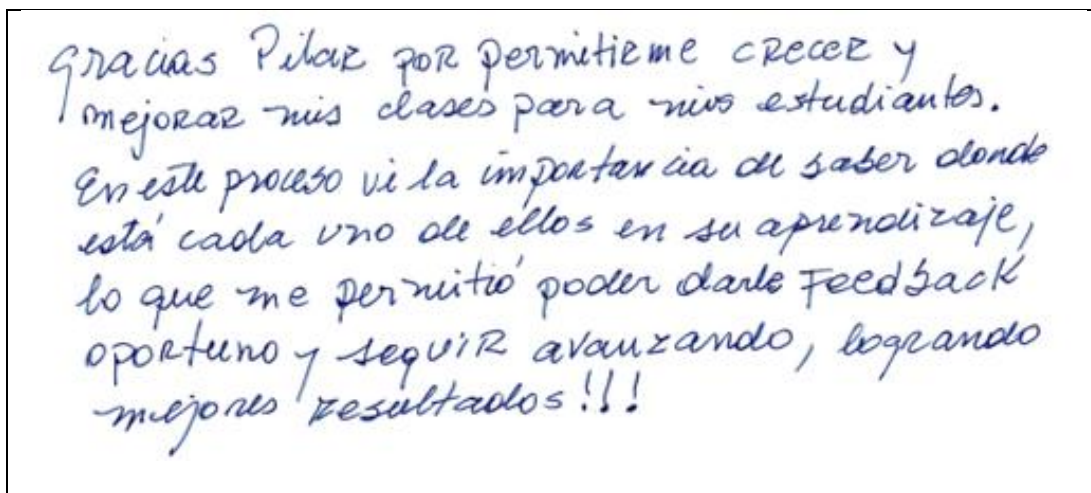 Gracias Pilar por permitirme crecer y
mejorar mis clases para mis estudiantes.
En este proceso vi la importancia de saber donde
está cada uno de ellos en su aprendizaje,
lo que me permitió poder darle Feedback
oportuno y seguir avanzando, logrando
mejores resultados!!!